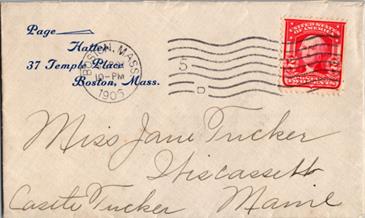 Page
Hatter
37 Temple Place
Boston, Mass.
BOSTON, MASS.
10-PM
1905
5
D
UNITED STATES OF AMERICA
2
2
TWO CENTS
Miss Jane Tucker
Wiscassett
Castle Tucker Maine